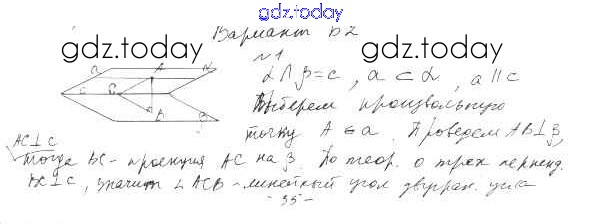 gdz.today
Вариант В2
gdz.today
gdz.today
№1
α∩β=c, a⊂α, a∥c
Выберем произвольную
точку A∈a. Проведем AB⊥β,
AC⊥c
тогда BC - проекция AC на β. По теор. о трех перпенд.
BC⊥c, значит ∠ACB - линейный угол двугран. угла
- 35 -